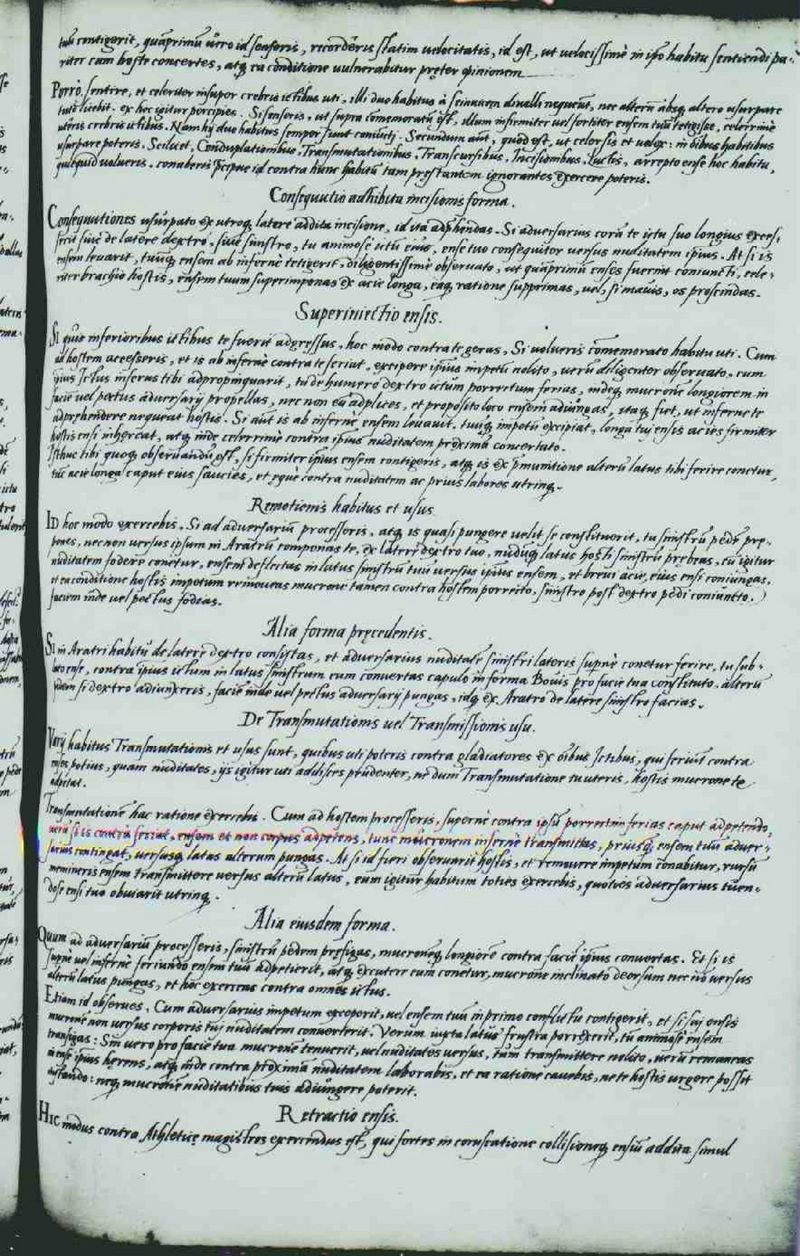 tuū contigerit, quāprimū vero id senseris, recorderis statim velocitatis, id est, ut velocissimè in ipso habitu sentiendi pa-
riter cum hoste concertes, atq ea conditione vulnerabitur preter opinionem
Porro, sentire, et celeriter insuper crebris ictibus uti, illi duo habitus à seinvicem divelli nequeunt, nec alterū absq altero usurpare
tuto licebit. ex hoc igitur percipies. Si senseris, ut supra comemoratū est, illum infirmiter vel fortiter ensem tuū tetigisse, celerrimè
uteris crebris ictibus. Nam hij duo habitus semper sunt coniuncti. Secundum aūt, quod est, ut celer sis et velox: in oībus habitibus
usurpare poteris. Scilicet, Conduplationibus, Transmutationibus, Transcursibus, Incisionibus, Luctis, arrepto ense hoc habitu,
quicquid volueris. conaberis precipue id contra hunc habitū tam prestantem ignorantes exercere poteris.
Consequutio adhibita incisionis forma.
Consequutiones usurpato ex utroq latere addita incisione, id ita adprehendas. Si adversarius corā te ictu suo longius exces-
serit sive de latere dextro, sive sinistro, tu animose ictū eius, ense tuo consequitor versus nuditatem ipsius. At si is
ensem levarit, tuūq ensem ab infernè tetigerit, diligentissimè observato, ut quāprimū enses fuerint coniuncti, cele-
riter brachio hostis, ensem tuum superimponas ex acie longa, eaq ratione supprimas, vel, si mavis, os proscindas.
Superiniectio ensis.
Si quis inferioribus ictibus te fuerit adgressus, hoc modo contra te geras, Si volueris comemorato habitu uti. Cum
ad hostem accesseris, et is ab infernè contra te feriat, excipere ipsius impetū nolito, verū diligenter observato, cum
ipsius Ictus infernus tibi adpropinquarit, tu de humero dextro ictum porrectum ferias, indeq mucronē longiorem in
faciē vel pectus adversarij propellas, nec non eū adplices, et proposito loco ensem adiungas, itaq fiet, ut infernè te
adprehendere nequeat hostis. Si aūt is ab infernè, ensem levavit, tuūq impetū excipiat, longa tui ensis acies firmiter
hostis ensi inhereat, atq inde celerrimè contra ipsius nuditatem proximā concertato.
Isthuc tibi quoq observandū est, si firmiter ipsius ensem contigeris, atq is ex premunitione alterū latus tibi ferire conetur,
tūc acie longa caput eius saucies, et eque contra nuditatem ac prius labores utrinq.
Remotionis habitus et usus
Id hoc modo exercebis. Si ad adversariū processeris, atq is quasi pungere velit se constituerit, tu sinistrū pedē pre-
pones, nec non versus ipsum in Aratrū componas te, ex latere dextro tuo, nudūq latus hosti sinistrū prebeas, cū igitur
nuditatem fodere conetur, ensem deflectas in latus sinistrū tuū versus ipsius ensem, et brevi acie, eius ensi coniungas,
et ea conditione hostis impetum removeas mucrone tamen contra hostem porrecto, sinistro post dextro pedi coniuncto.
faciem inde vel pectus fodias.
Alia forma precedentis.
Si in Aratri habitū de latere dextro consistas, et adversarius nuditatē sinistri lateris supernè conetur ferire, tu sub-
lato ense, contra ipsius ictum in latus sinistrum eum convertas capulo in forma Bovis pro facie tua constituto. alterū
pedem si dextro adiunxeris, faciē inde vel pectus adversarij pungas, idq ex Aratro de latere sinistro facias.
De Transmutationis vel Transmissionis usu.
Varij habitus Transmutationis et usus sunt, quibus uti poteris contra gladiatores ex oībus Ictibus, qui feriunt contra
enses potius, quam nuditates, ijs igitur uti addisces prudenter, ne dum Transmutatione tu uteris, hostis mucrone te
adpetat.
Transmutationē hac ratione exercebis. Cum ad hostem processeris, supernè contra ipsū porrectim ferias caput adpetendo,
verū si is contra feriat, ensem et non corpus adpetens, tunc mucronem infernè transmittas, priusq ensem tuū adver-
sarius contingat, versusq latus alterum pungas. At si id fieri observarit hostis, et removere impetum conabitur, rursū
memineris ensem transmittere versus alterū latus, eum igitur habitum toties exercebis, quoties adversarius tuen-
dose ensi tuo obviarit utrinq.
Alia eiusdem forma.
Quum ad adversariū processeris, sinistrū pedem prefigas, mucronēq longiorē contra faciē ipsius convertas. Et si is
supernè vel infernè feriundo ensem tuū adpetierit, atq excutere eum conetur, mucrone inclinato deorsum nec nō versus
alterū latus pungas, et hoc exerceas contra omnes ictus.
Etiam id observes. Cum adversarius impetum exceperit, vel ensem tuū in primo conflictu contigerit, et si sui ensis
mucronē non versus corporis tui nuditatem converterit. Verum iuxta latus frustra porrexerit, tū animose ensem
transigas: Sin vero pro facie tua mucronē tenuerit, vel nuditates versus, tum transmittere nolito, verū remaneas
in ense ipsius herens, atq inde contra proximā nuditatem laborabis, et ea ratione cavebis, ne te hostis urgere possit
instando: neq mucronē nuditatibus tuis adiungere poterit.
Retractio ensis.
Hic modus contra Athleticę magistros exercendus est, qui fortes in coruscatione collisioneq ensiū addita simul